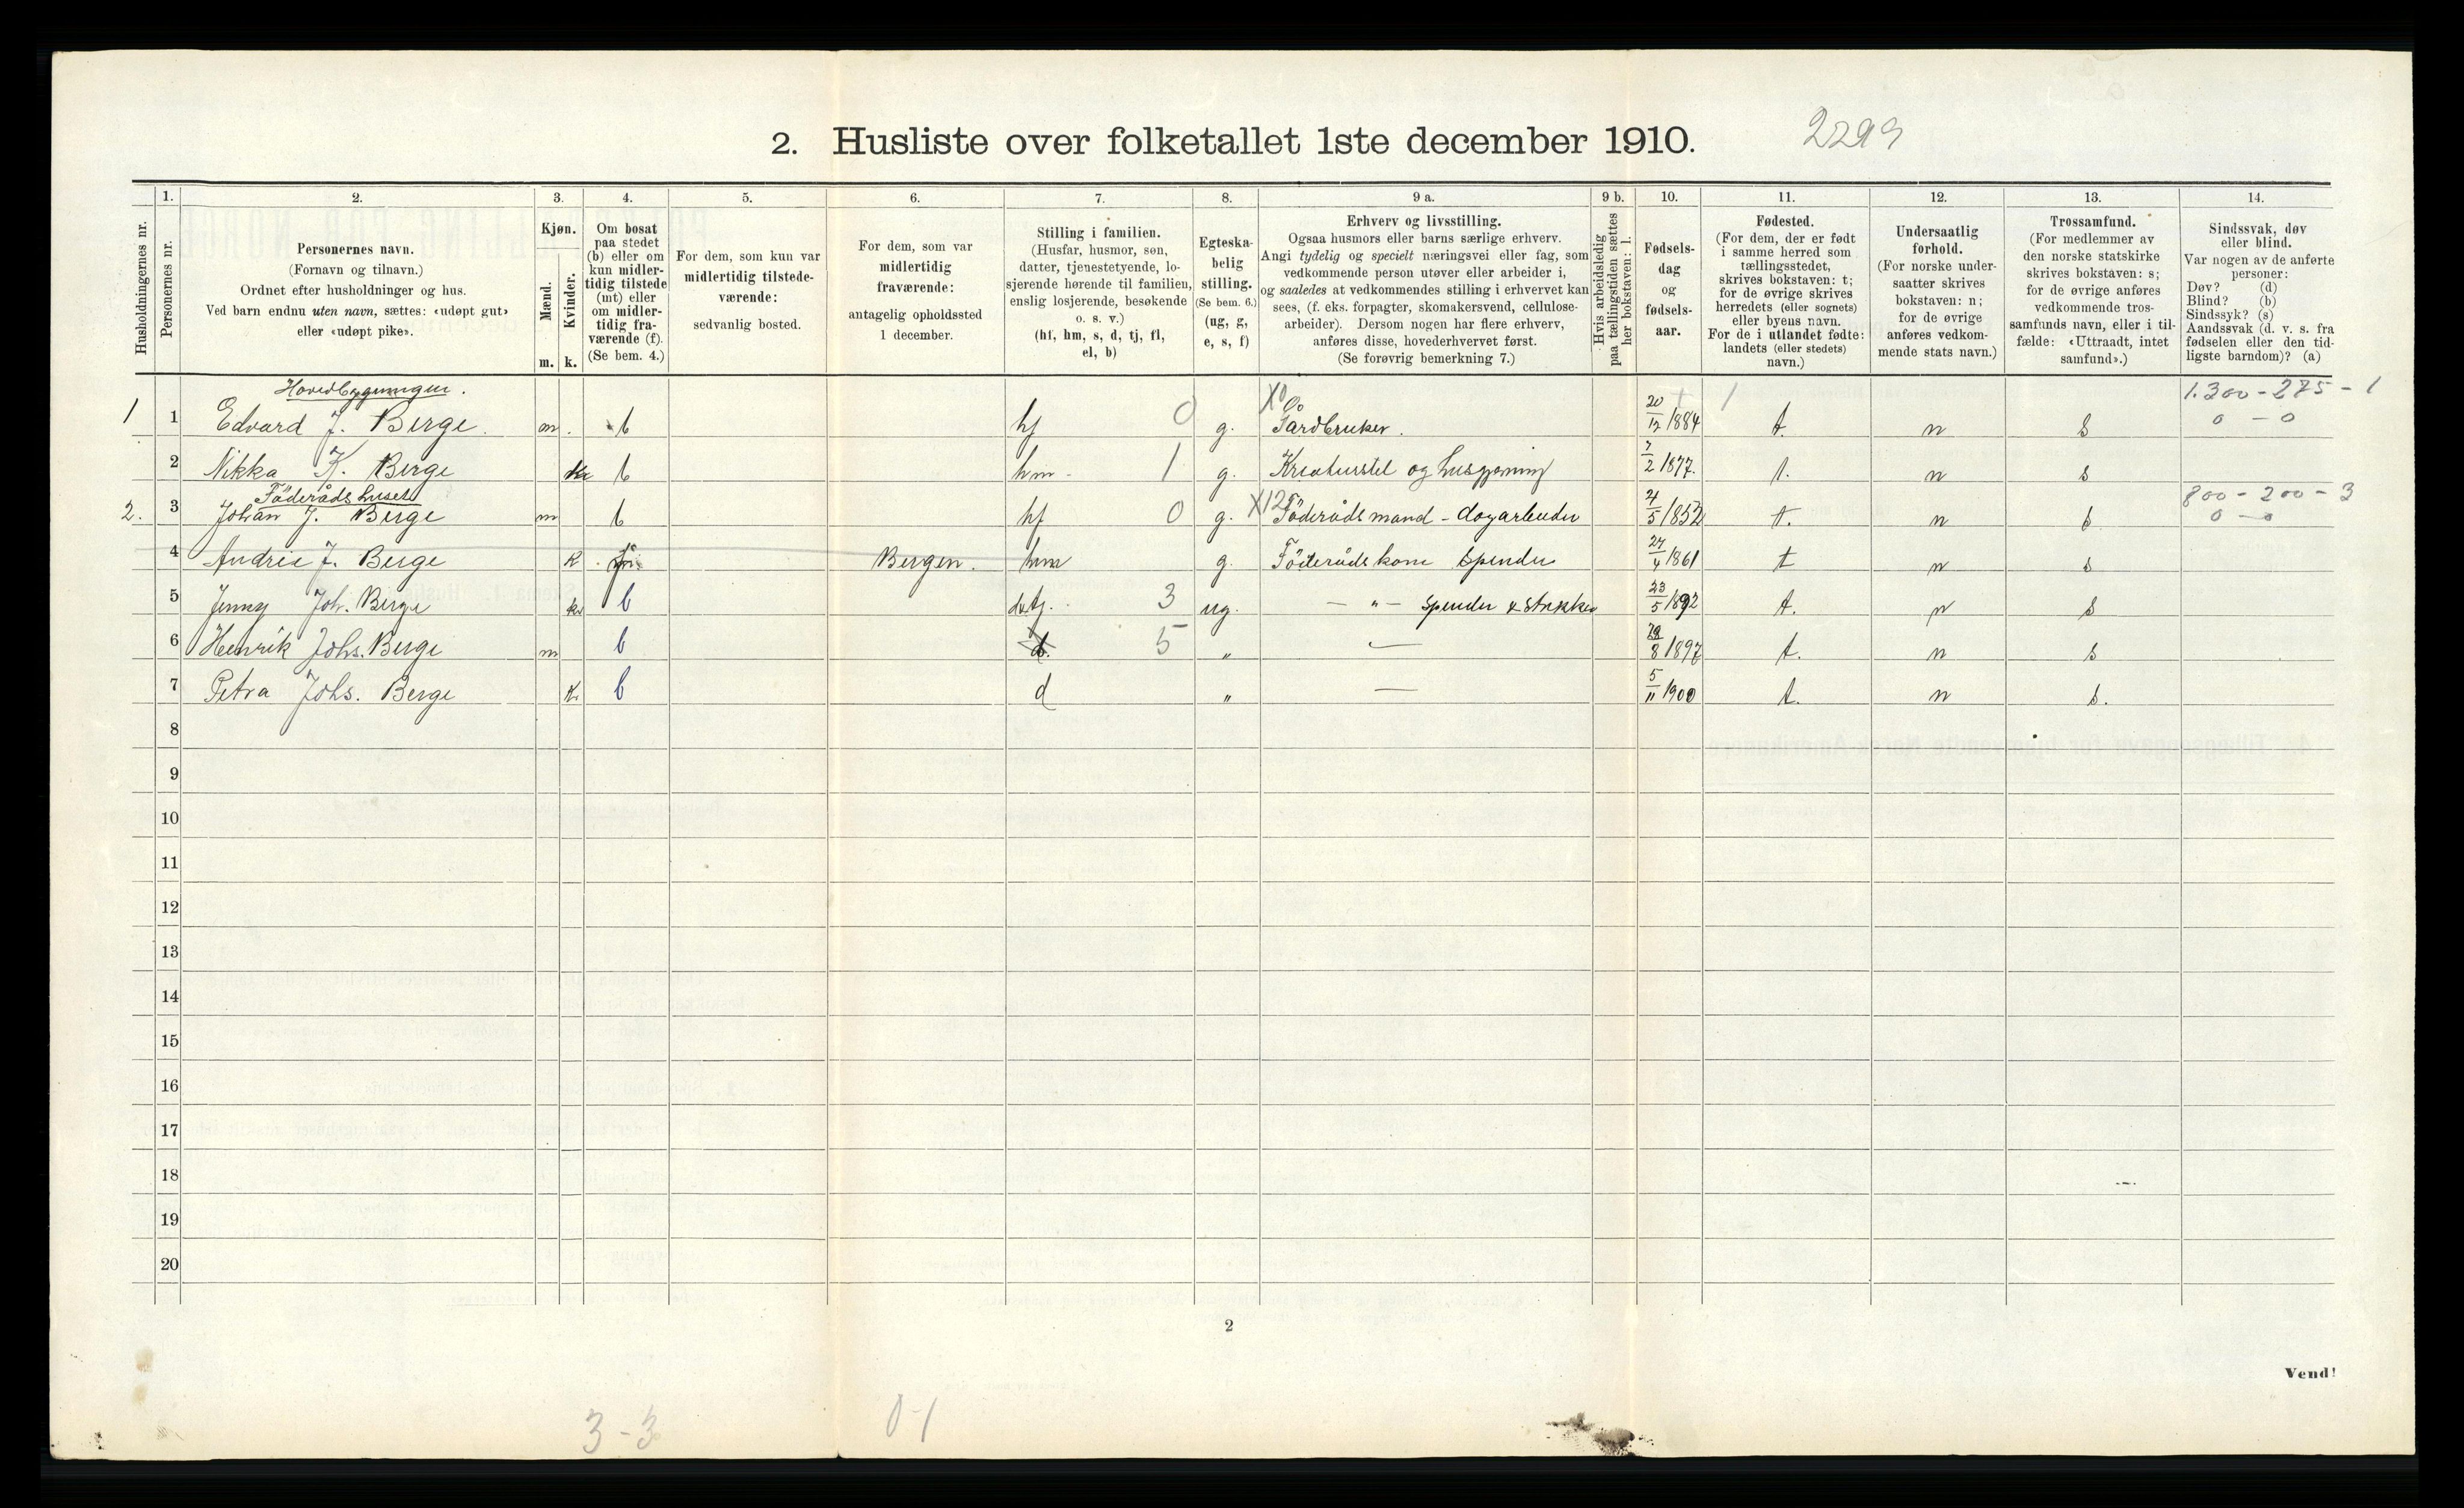 2. Husliste over folketallet 1ste december 1910. 2299
Husholdningernes nr.
1. Personernes nr.
2. Personernes navn.
(Fornavn og tilnavn.)
Ordnet efter husholdninger og hus.
Ved barn endnu uten navn, sættes: «udøpt gut»
eller «udøpt pike».
3. Kjøn.
Mænd. m.
Kvinder. k.
4. Om bosat
paa stedet
(b) eller om
kun midler-
tidig tilstede
(mt) eller
om midler-
tidig fra-
værende (f).
(Se bem. 4.)
5. For dem, som kun var
midlertidig tilstede-
værende:
sedvanlig bosted.
6. For dem, som var
midlertidig
fraværende:
antagelig opholdssted
1 december.
7. Stilling i familien.
(Husfar, husmor, søn,
datter, tjenestetyende, lo-
sjerende hørende til familien,
enslig losjerende, besøkende
o. s. v.)
(hf, hm, s, d, tj, fl,
el, b)
8. Egteska-
belig
stilling.
(Se bem. 6.)
(ug, g,
e, s, f)
9 a. Erhverv og livsstilling.
Ogsaa husmors eller barns særlige erhverv.
Angi tydelig og specielt næringsvei eller fag, som
vedkommende person utøver eller arbeider i,
og saaledes at vedkommendes stilling i erhvervet kan
sees, (f. eks. forpagter, skomakersvend, cellulose-
arbeider). Dersom nogen har flere erhverv,
anføres disse, hovederhvervet først.
(Se forøvrig bemerkning 7.)
9 b. Hvis arbeidsledig
paa tællingstiden sættes
her bokstaven: l.
10. Fødsels-
dag
og
fødsels-
aar.
11. Fødested.
(For dem, der er født
i samme herred som
tællingsstedet,
skrives bokstaven: t;
for de øvrige skrives
herredets (eller sognets)
eller byens navn.
For de i utlandet fødte:
landets (eller stedets)
navn.)
12. Undersaatlig
forhold.
(For norske under-
saatter skrives
bokstaven: n;
for de øvrige
anføres vedkom-
mende stats navn.)
13. Trossamfund.
(For medlemmer av
den norske statskirke
skrives bokstaven: s;
for de øvrige anføres
vedkommende tros-
samfunds navn, eller i til-
fælde: «Uttraadt, intet
samfund».)
14. Sindssvak, døv
eller blind.
Var nogen av de anførte
personer:
Døv? (d)
Blind? (b)
Sindssyk? (s)
Aandssvak (d. v. s. fra
fødselen eller den tid-
ligste barndom)? (a)
Hovedbygningen. X0 1 1.300 - 275 - 1
1 1 Edvard J. Berge. m. b hf 0 g. Gardbruker. 20/12 1884 t. n s 0 - 0
2 Nikka K. Berge k b hm 1 g. Kreaturstel og husgjerning 7/2 1877. t. n s
Föderådshuset X12 800 - 200 - 3
2. 3 Johan J. Berge m b hf 0 g. Föderådsmand - dagarbeider 21/5 1852 t. n s 0 - 0
4 Andrea J. Berge k f Bergen. hm g. Föderådskone spinder 24/4 1861 t n s
5 Jenny Joh. Berge k b d tj. 3 ug. - " - spinder & strikker 23/5 1892 t. n s
6 Henrik Johs. Berge m b 5 " - 8 1897 t. n s
7 Petra Johs. Berge k b d " - 5/11 1900 t. n s.
8
9
10
11
12
13
14
15
16
17
18
19
20
2
Vend!
3 - 3 0-1